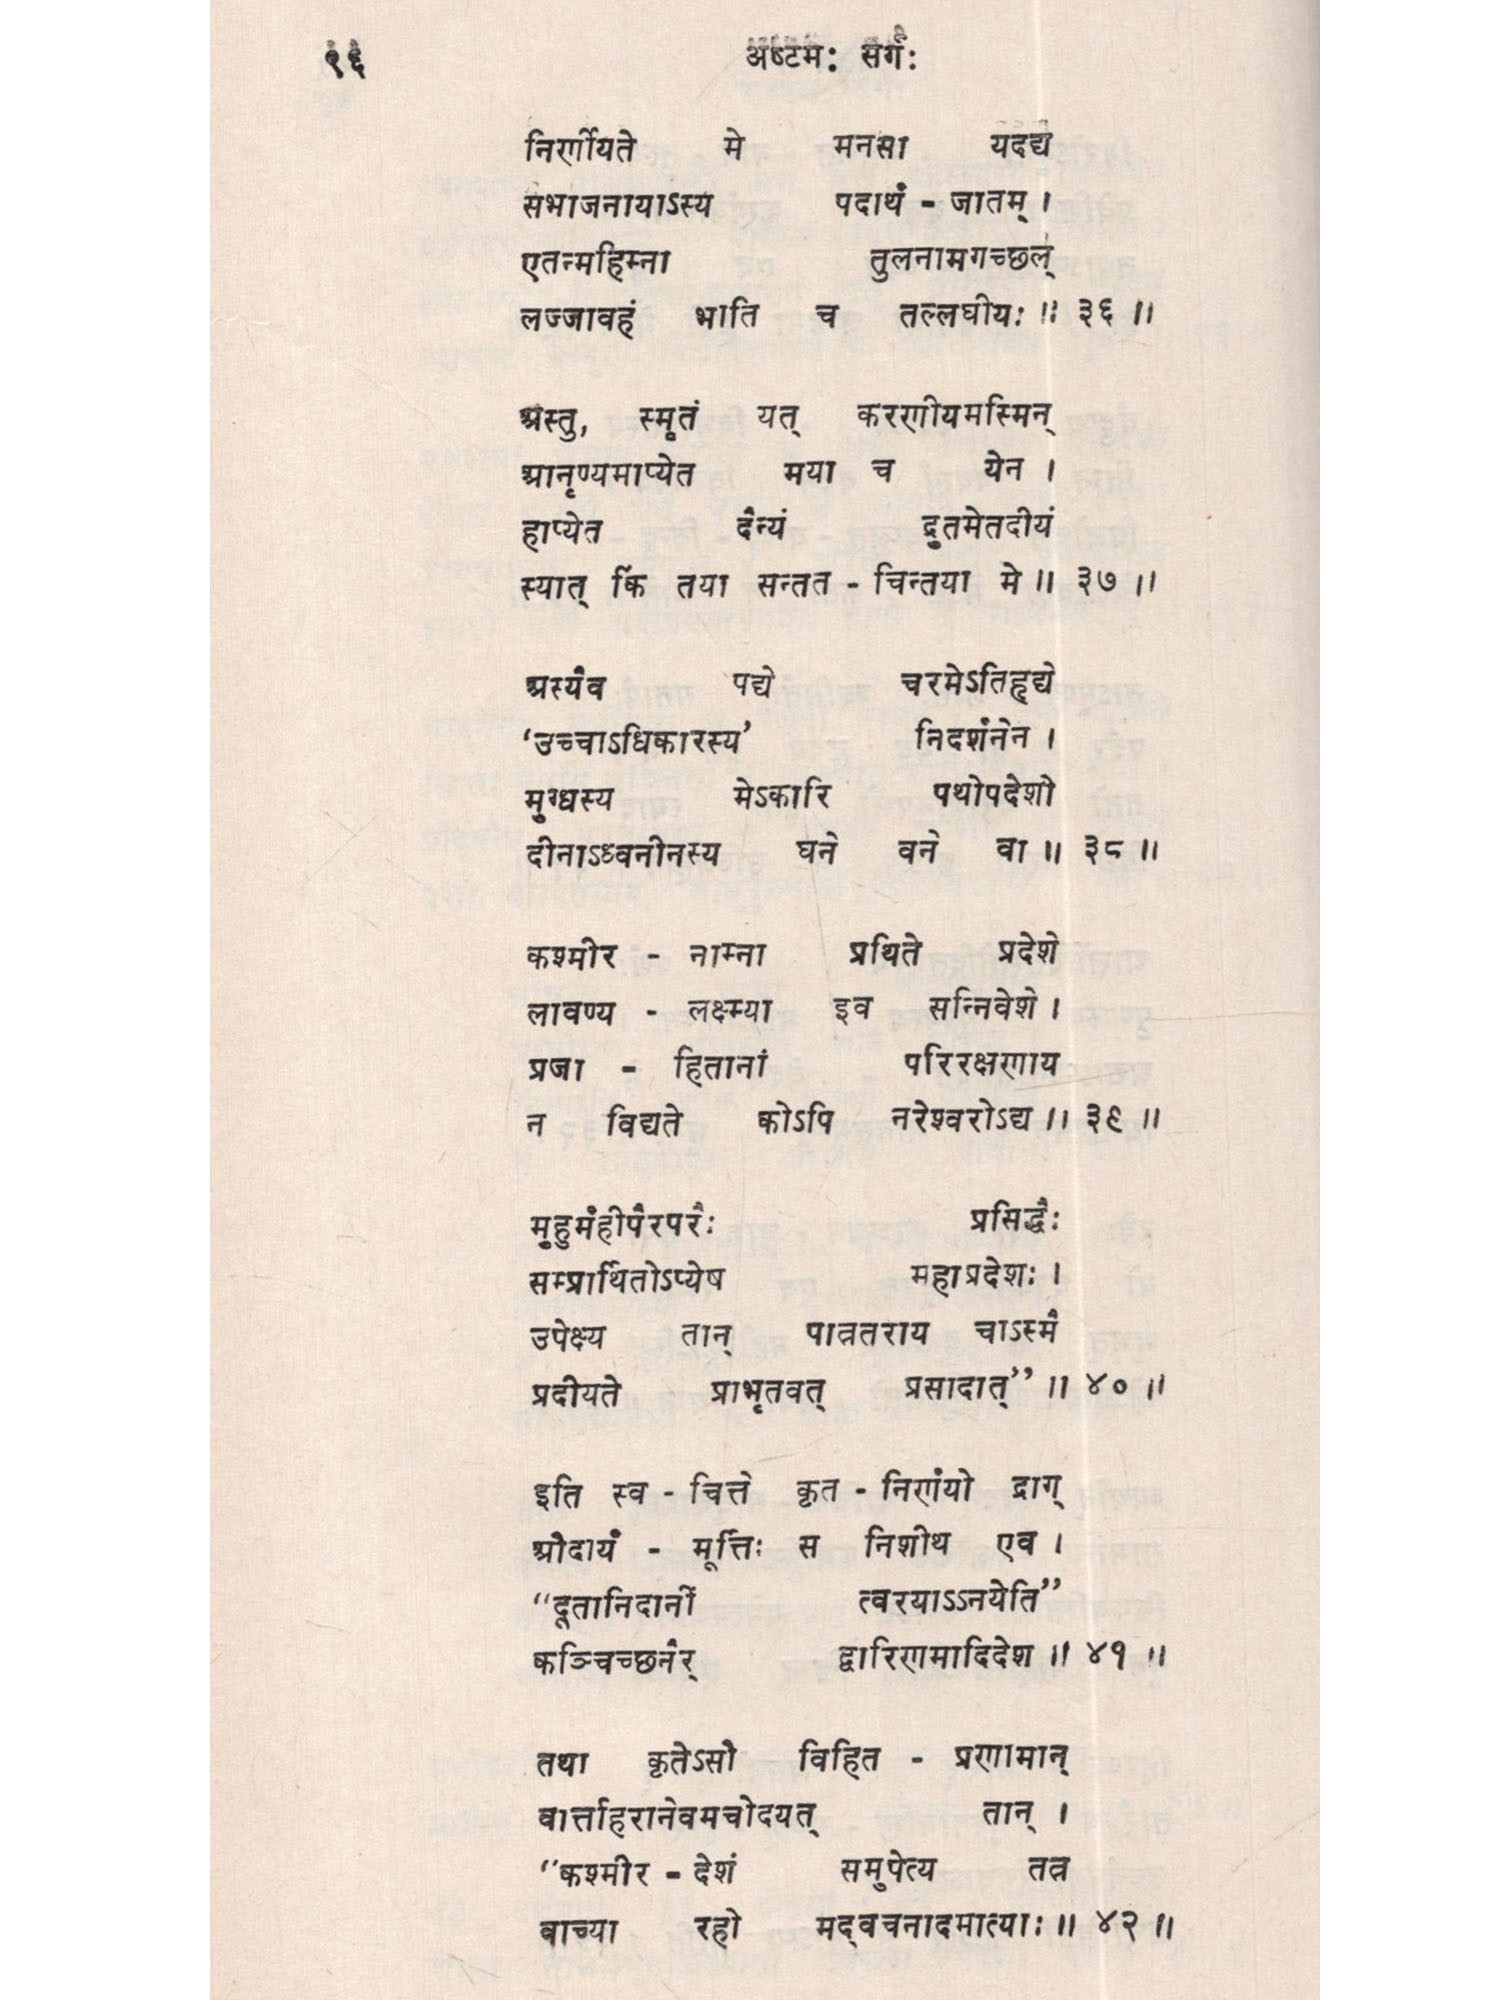 ९६ अष्टमः सर्गः
निर्णीयते मे मनसा यदद्य
सभाजनायाऽस्य पदार्थ - जातम् ।
एतन्महिम्ना तुलनामगच्छल्
लज्जावहं भाति च तल्लघीयः ॥ ३६ ॥
अस्तु, स्मृतं यत् करणीयमस्मिन्
आनृण्यमाप्येत मया च येन ।
हाप्येत दैन्यं द्रुतमेतदीयं
स्यात् किं तया सन्तत - चिन्तया मे ॥ ३७ ॥
अस्यैव पद्ये चरमेऽतिहृद्ये
‘उच्चाऽधिकारस्य’ निदर्शनेन ।
मुग्धस्य मेऽकारि पथोपदेशो
दीनाऽध्वनीनस्य घने वने वा ॥ ३८ ॥
कश्मीर - नाम्ना प्रथिते प्रदेशे
लावण्य - लक्ष्म्या इव सन्निवेशे ।
प्रजा - हितानां परिरक्षणाय
न विद्यते कोऽपि नरेश्वरोऽद्य ॥ ३९ ॥
मुहुर्महीपैरपरैः प्रसिद्धैः
सम्प्रार्थितोऽप्येष महाप्रदेशः ।
उपेक्ष्य तान् पात्रतराय चाऽस्मै
प्रदीयते प्राभृतवत् प्रसादात्” ॥ ४० ॥
इति स्व - चित्ते कृत - निर्णयो द्राग्
औदार्य - मूर्त्तिः स निशीथ एव ।
“दूतानिदानीं त्वरयाऽऽनयेति”
कञ्चिच्छनैर् द्वारिणमादिदेश ॥ ४१ ॥
तथा कृतेऽसौ विहित - प्रणामान्
वार्त्ताहरानेवमचोदयत् तान् ।
“कश्मीर - देशं समुपेत्य तत्र
वाच्या रहो मद्वचनादमात्याः ॥ ४२ ॥